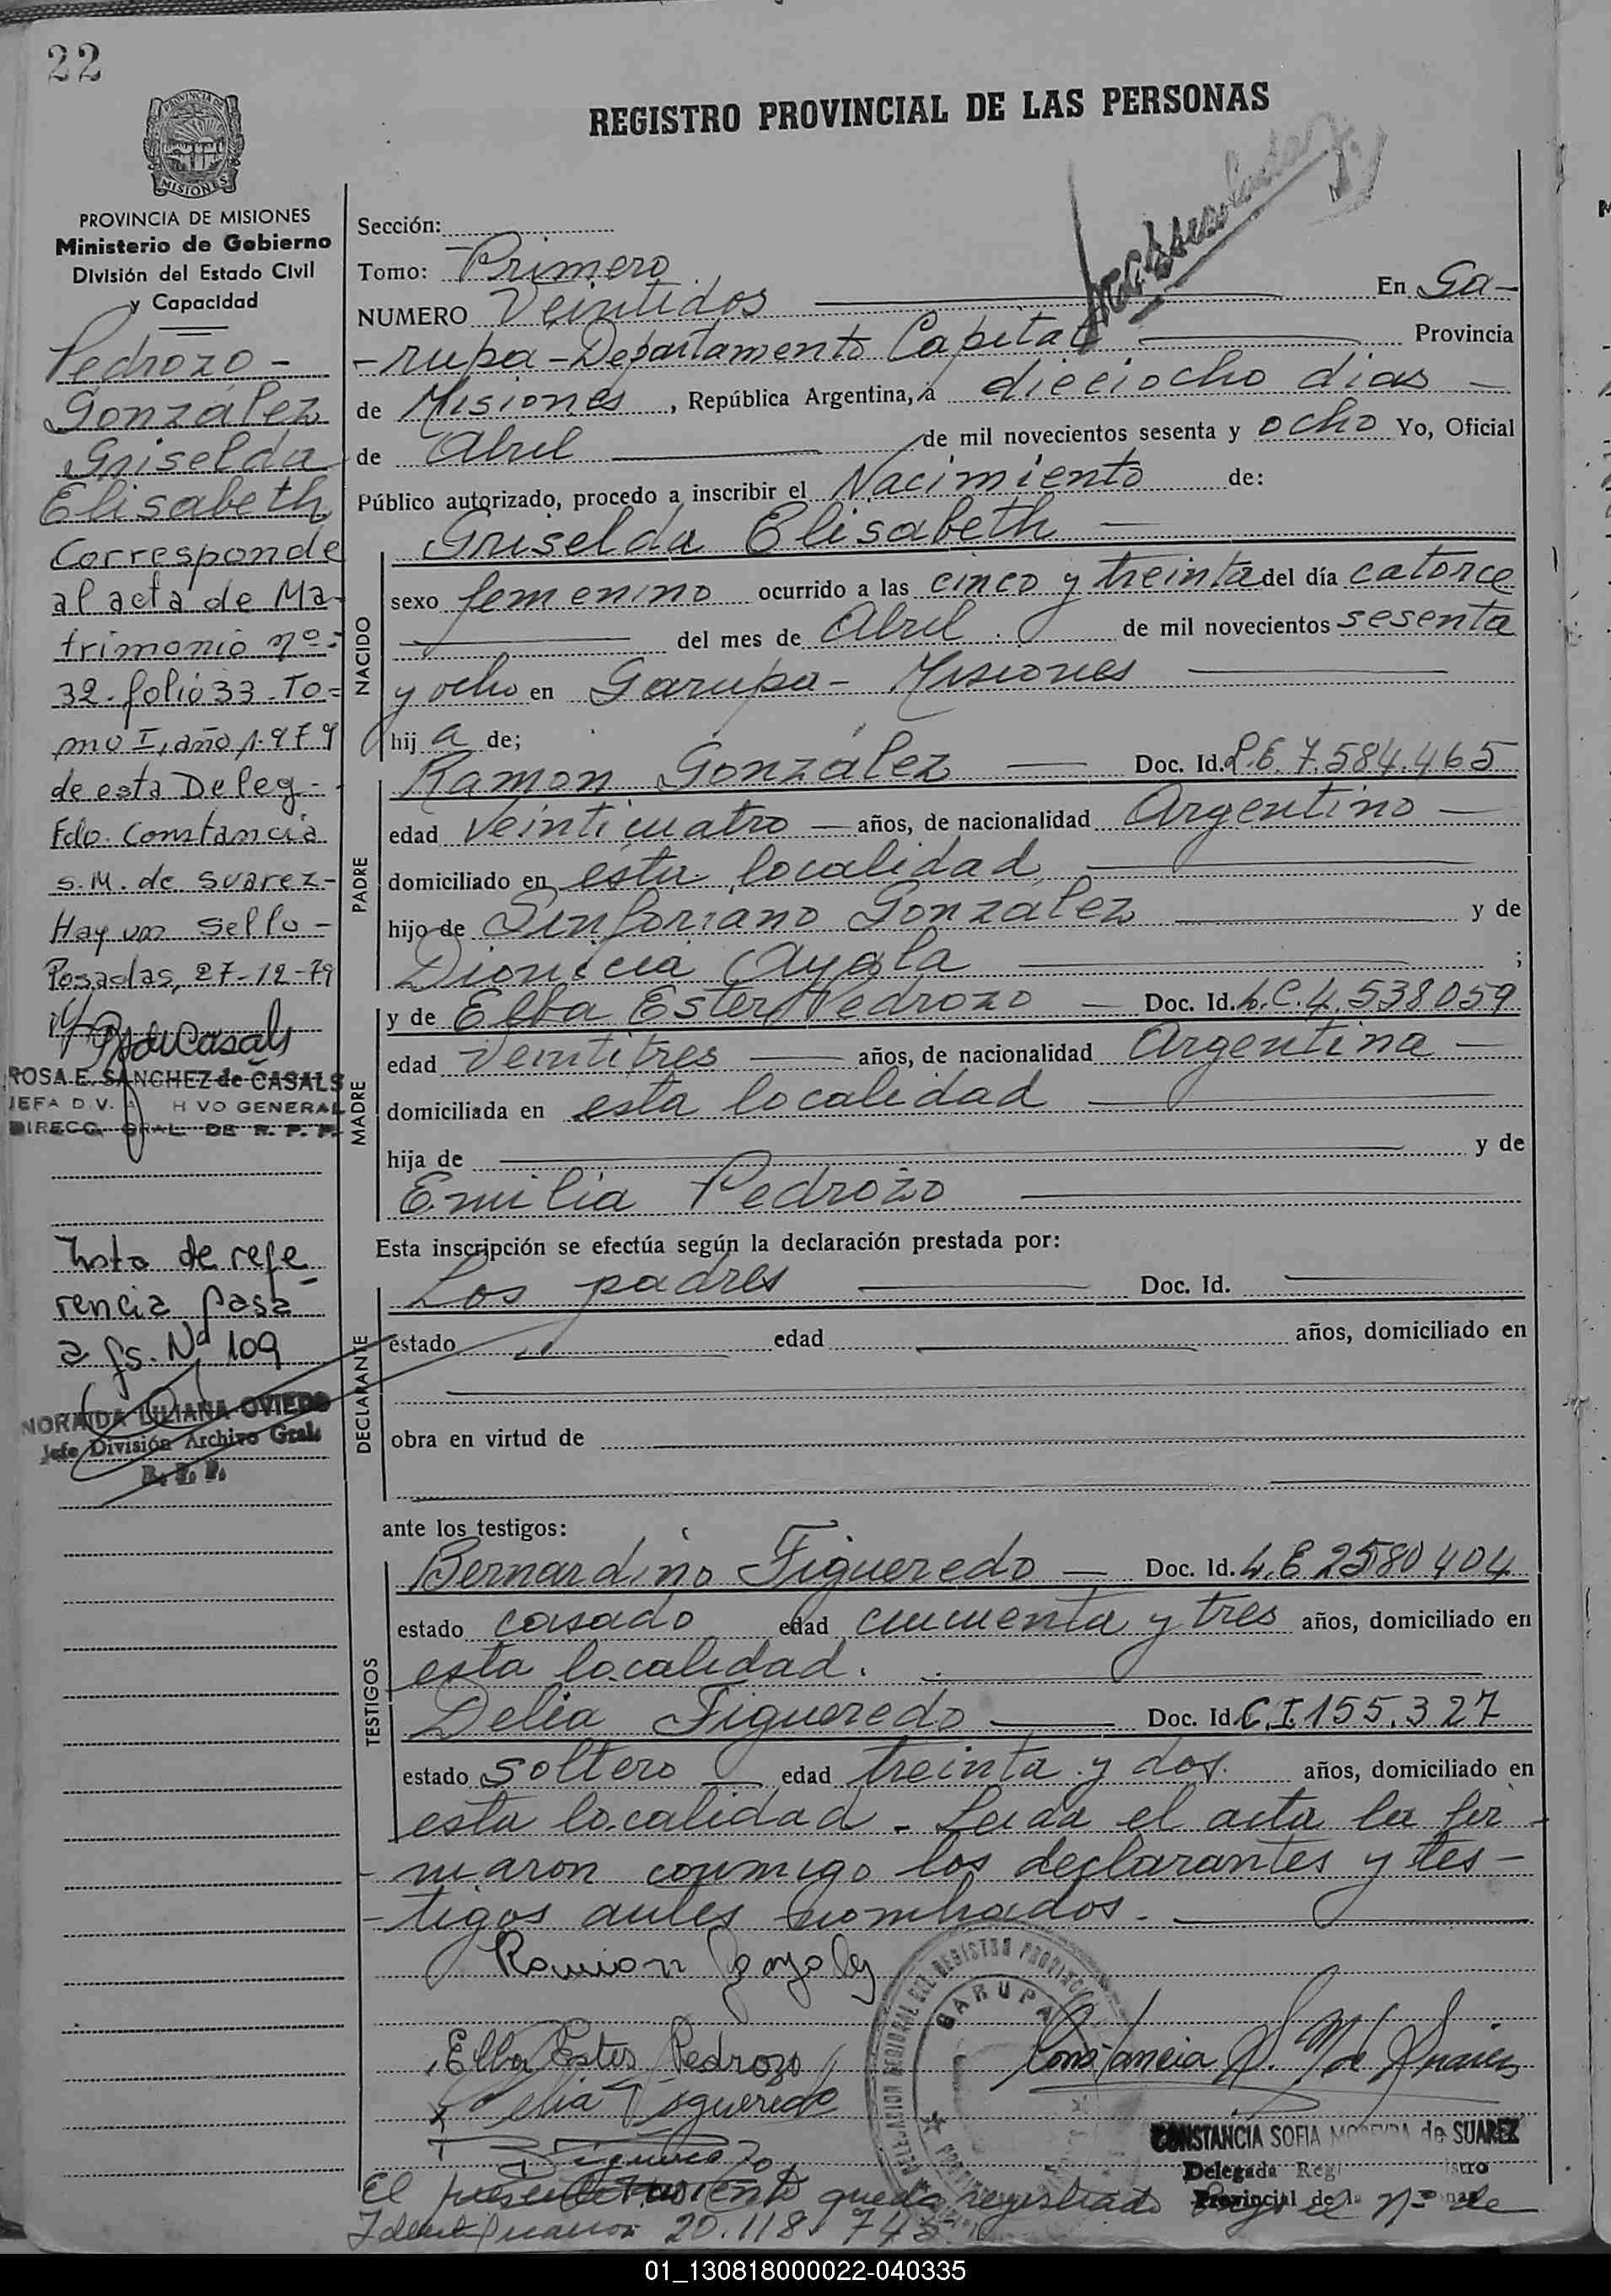 22
REGISTRO PROVINCIAL DE LAS PERSONAS
PROVINCIA DE MISIONES
Ministerio de Gobierno
División del Estado Civil
y Capacidad
Pedrozo -
González
Griselda
Elisabeth
Corresponde
al acta de Ma-
trimonio nº=
32-folio 33-To=
mo I, año 1.979
de esta Deleg-
Fdo. Constancia
S.M. de Suarez-
Hay un Sello-
Posadas, 27-12-79
ROSA E. SANCHEZ de CASALS
JEFA DIV. GENERAL
DIRECC. GRAL. DE R. P. P.
Nota de refe
rencia pasa
a fs. Nº 109
NORAIDA LILIANA OVIEDO
Jefe División Archivo Gral.
R. P. P.
Sección:
Tomo: Primero
NUMERO Veintidos En Ga-
-rupa-Departamento Capital Provincia
de Misiones, República Argentina, a dieciocho dias
de Abril de mil novecientos sesenta y ocho Yo, Oficial
Público autorizado, procedo a inscribir el Nacimiento de:
NACIDO
Griselda Elisabeth
sexo femenino ocurrido a las cinco y treinta del día catorce
del mes de Abril de mil novecientos sesenta
y ocho en Garupa - Misiones
hija de;
PADRE
Ramon González Doc. Id. L.E. 7.584.465
edad veinticuatro años, de nacionalidad Argentino
domiciliado en esta localidad
hijo de Sinforiano Gonzalez y de
Dionicia Ayala ;
MADRE
y de Elba Ester Pedrozo Doc. Id. L.C. 4.538.059
edad veintitres años, de nacionalidad Argentina
domiciliada en esta localidad
hija de y de
Emilia Pedrozo
Esta inscripción se efectúa según la declaración prestada por:
DECLARANTE
Los padres Doc. Id.
estado edad años, domiciliado en
obra en virtud de
ante los testigos:
TESTIGOS
Bernardino Figueredo Doc. Id. L.E 2580404
estado casado edad cincuenta y tres años, domiciliado en
esta localidad.
Delia Figueredo Doc. Id. C.I. 155.327
estado soltero edad treinta y dos. años, domiciliado en
esta localidad - Leida el acta la fir-
-maron conmigo los declarantes y tes-
-tigos antes nombrados.
Ramon Gonzalez
Elba Ester Pedrozo
Delia Figueredo
Constancia S. M de Suarez
GARUPA
CONSTANCIA SOFIA MOREYRA de SUAREZ
Delegada
Provincial de
El presente queda registrado bajo el Nº de
Identificacion 20.118.745
01_130818000022-040335